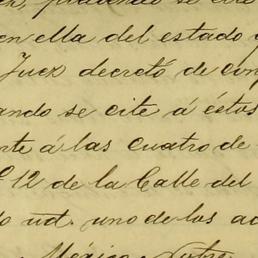 en ella del estado
Juez decretó de con
ando se cite á éstos
nte á las cuatro de
12 de la Calle del
do ud. uno de los ac
México